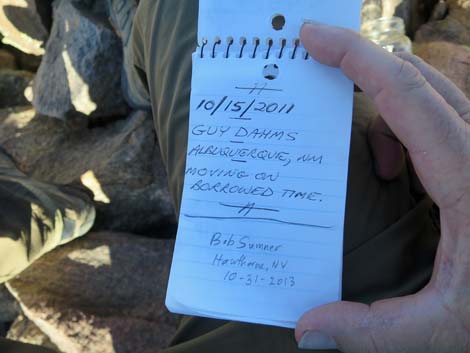 10/15/2011
GUY DAHMS
ALBUQUERQUE, NM
MOVING ON
BORROWED TIME.
Bob Sumner
Hawthorne, NV
10-31-2013